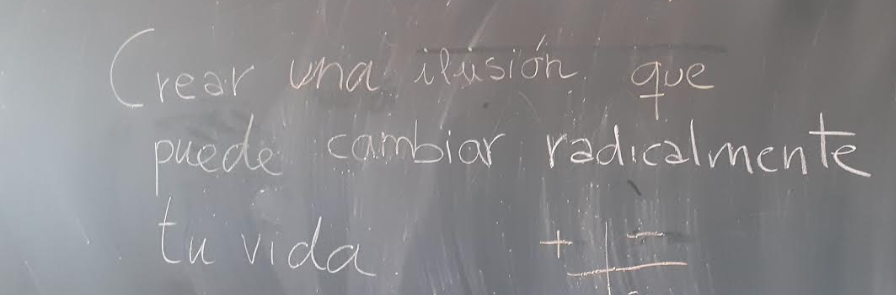 Crear una ilusión que
puede cambiar radicalmente
tu vida
+ -